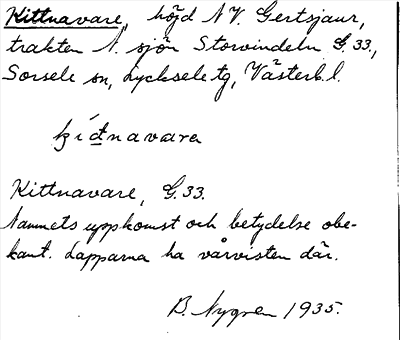 Kittnavare, höjd N.V. Gertsjaur,
trakten N. sjön Storvindeln G. 33.,
Sorsele sn, Lycksele tg, Västerb. l.
kídnavara
Kittnavare, G. 33.
Namnets uppkomst och betydelse obe-
kant. Lapparna ha vårvisten där.
B. Nygren 1935.